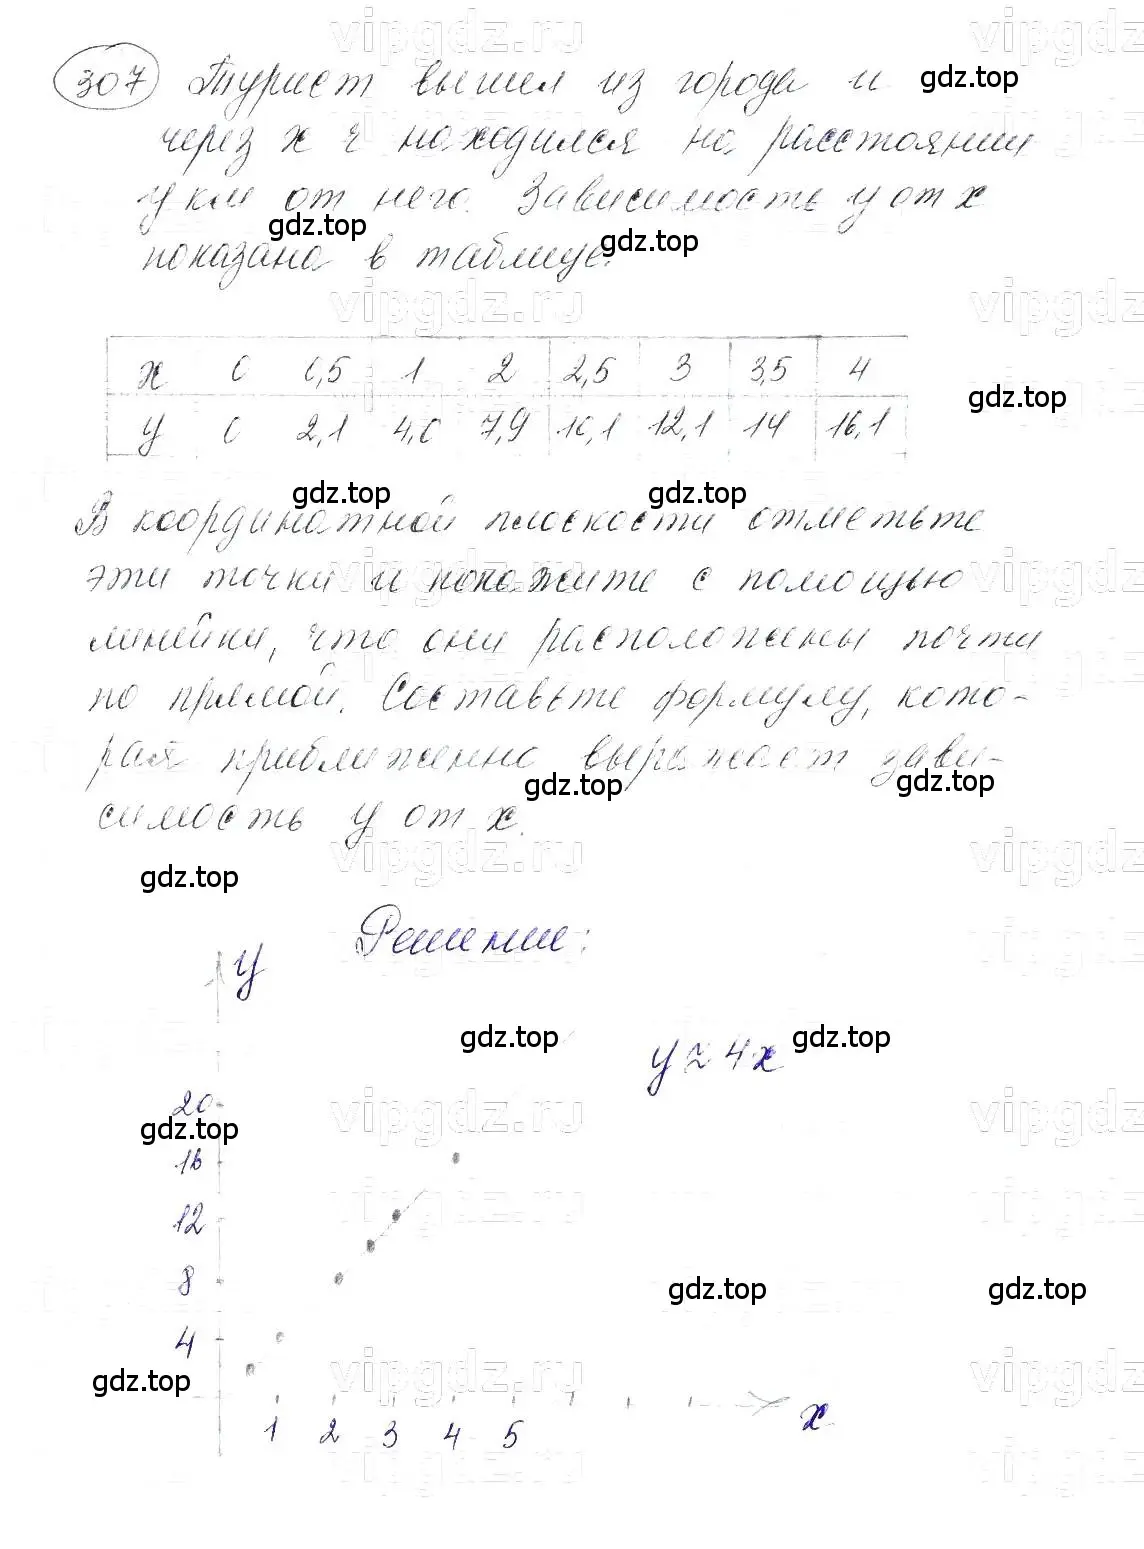 vipgdz.ru
307 Турист вышел из города и gdz.top
через x ч находился на расстоянии
y км от него. Зависимость y от x
gdz.top gdz.top
показана в таблице:
vipgdz.ru vipgdz
x 0 0,5 1 2 2,5 3 3,5 4
gdz.top
y 0 2,1 4,0 7,9 10,1 12,1 14 16,1
gdz.top gdz.top
В координатной плоскости отметьте
эти точки и покажите с помощью
vipgdz.ru vipgdz
линейки, что они расположены почти
на прямой. Составьте формулу, кото-
рая приближенно выражает зави-
gdz.top gdz.top
симость y от x.
vipgdz.ru vipgdz
gdz.top
Решение:
y
gdz.top y ≈ 4x gdz.top
20
vipgdz.ru vipgdz
gdz.top
16
12
8
gdz.top gdz.top
4
vipgdz.ru vipgdz
gdz.top
x
1 2 3 4 5